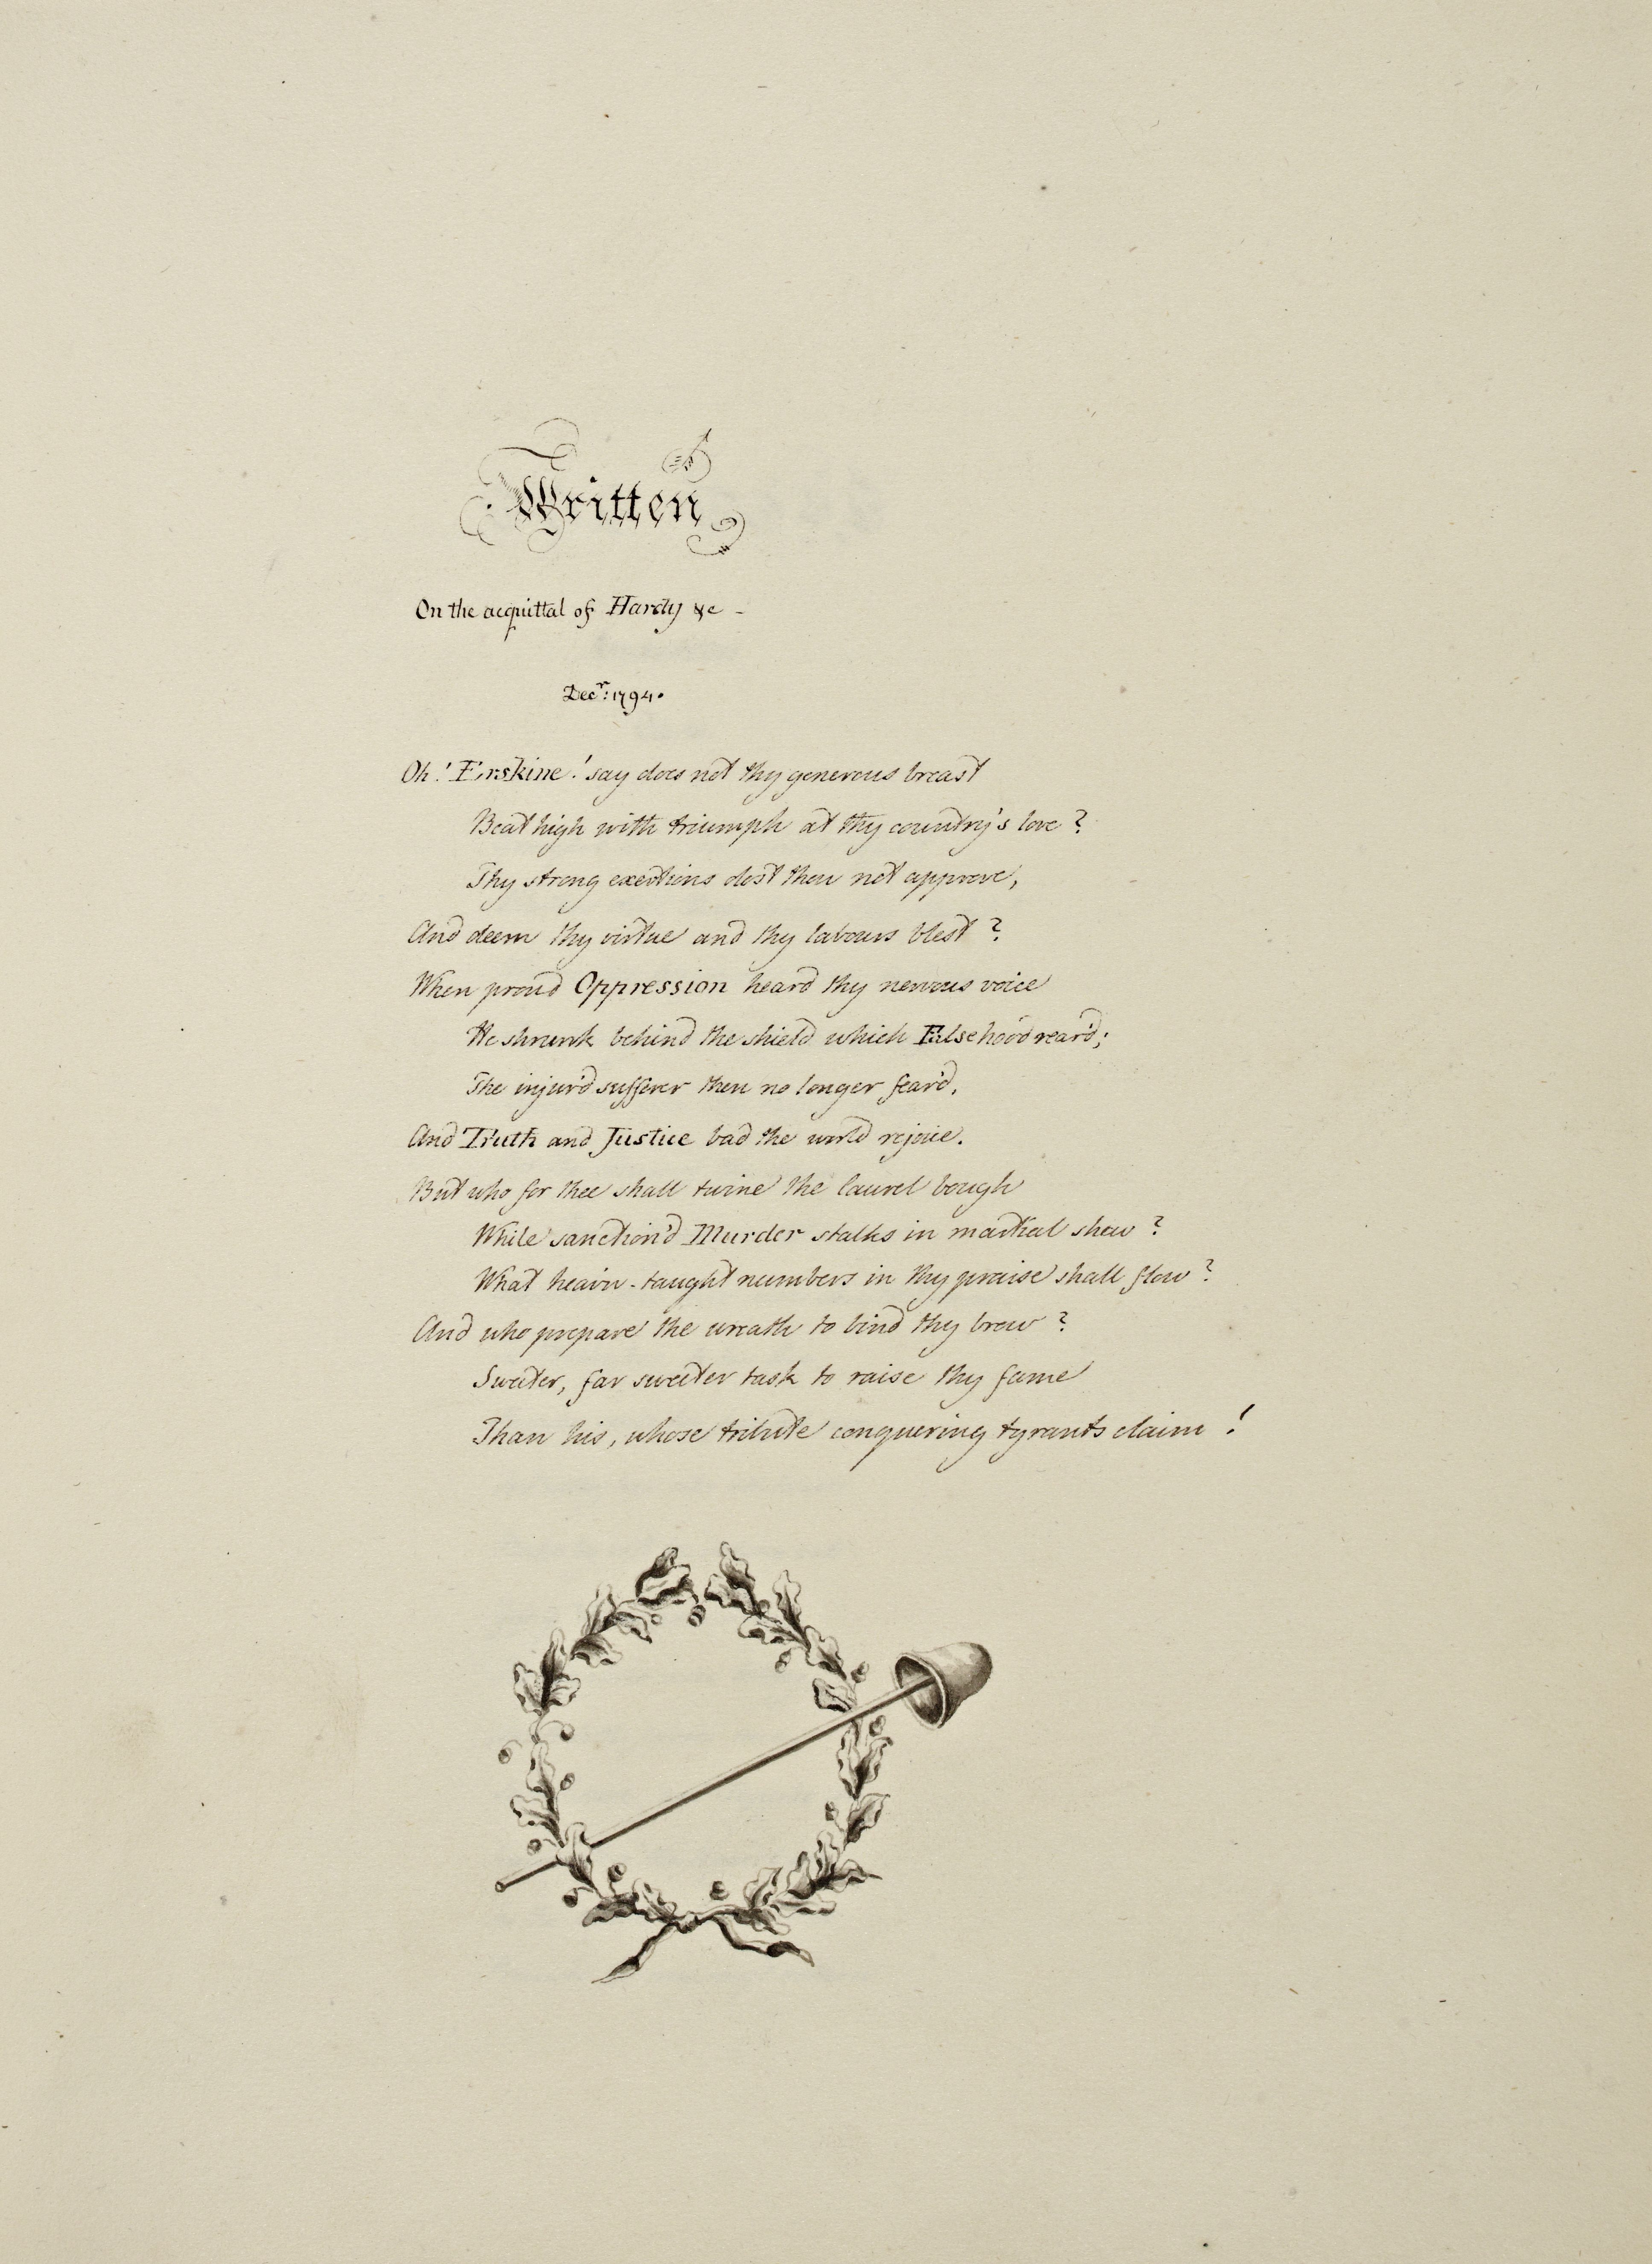 Written
On the acquittal of Hardy &c -
Decr: 1794.
Oh! Erskine! say does not thy generous breast
Beat high with triumph at thy country's love?
Thy strong exertions dost thou not approve,
And deem thy virtue and thy labours blest?
When proud Oppression heard thy nervous voice
He shrunk behind the shield which Falsehood rear'd;
The injur'd sufferer then no longer fear'd,
And Truth and Justice bad the world rejoice.
But who for thee shall twine the laurel bough
While sanction'd Murder stalks in martial shew?
What heav'n-taught numbers in thy praise shall flow?
And who prepare the wreath to bind thy brow?
Sweeter, far sweeter task to raise thy fame
Than his, whose tribute conquering tyrants claim!